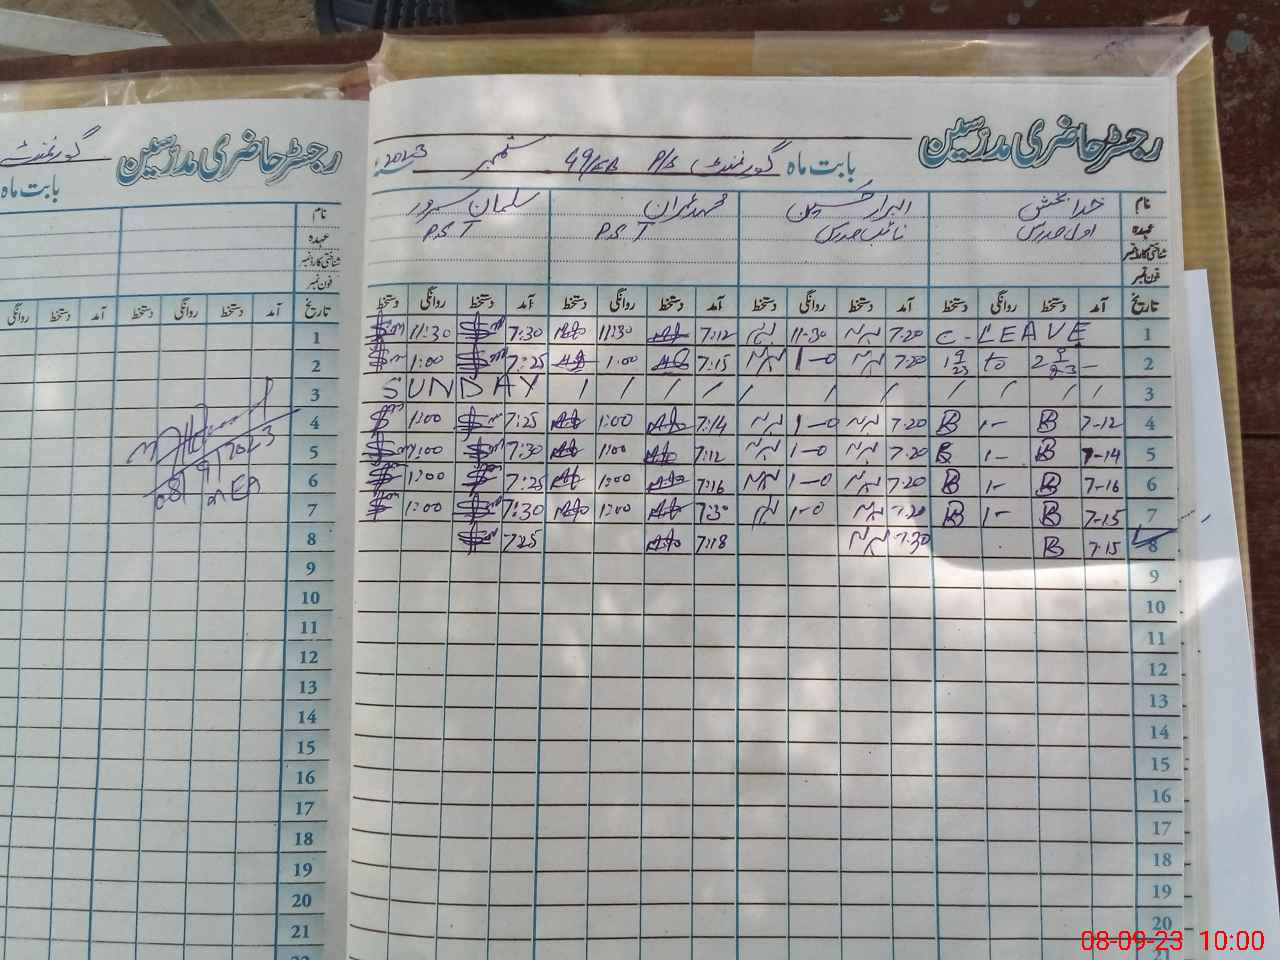 رجسٹر حاضری مدرسین
بابت ماہ گورنمنٹ P/S 49/EB ستمبر 2023
نام خدا بخش ابرار حسین محمد عمران سلمان سرور
عہدہ اول مدرس نائب مدرس PST PST
شناختی کارڈ نمبر
فون نمبر
تاریخ آمد دستخط روانگی دستخط آمد دستخط روانگی دستخط آمد دستخط روانگی دستخط آمد دستخط روانگی دستخط
1 C-LEAVE 7:20 11-30 7:12 11:30 7:30 11:30
2 1 9 23 to 2 9 23 7:20 1-0 7:15 1:00 7:25 1:00
3 SUNDAY
4 7-12 B 1- B 7:20 1-0 7:14 1:00 7:25 1:00
5 7-14 B 1- B 7:20 1-0 7:12 1:00 7:30 1:00
6 7-16 B 1- B 7:20 1-0 7:16 1:00 7:25 1:00
7 7-15 B 1- B 7:20 1-0 7:30 1:00 7:30 1:00
8 7-15 B 7:30 7:18 7:25
9
10
11
12
13
14
15
16
17
18
19
20
21
رجسٹر حاضری مدرسین
گورنمنٹ
بابت ماہ
نام
عہدہ
شناختی کارڈ نمبر
فون نمبر
تاریخ آمد دستخط روانگی دستخط آمد دستخط روانگی
1
2
3
4
5
6
7
8
9
10
11
12
13
14
15
16
17
18
19
20
21
08/9/2023
MEA
08-09-23 10:00